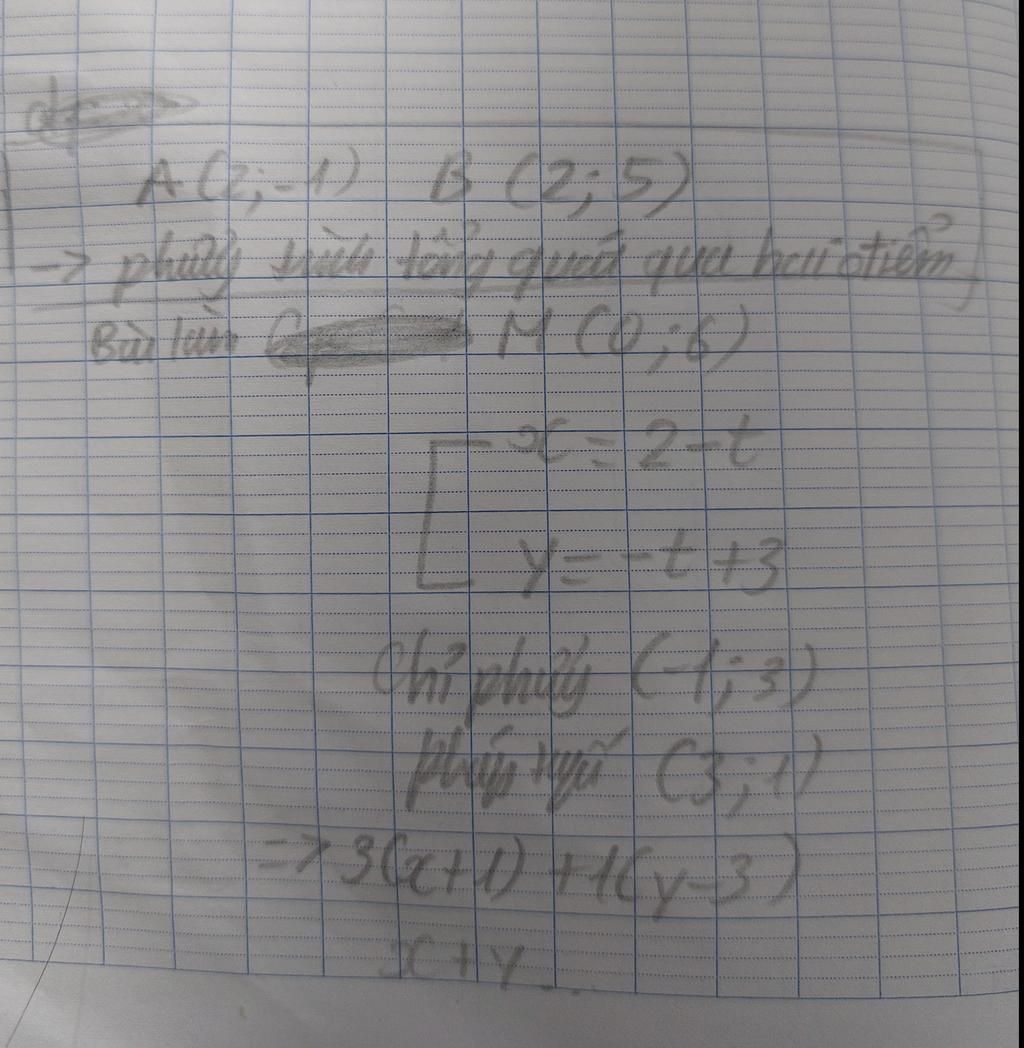 A(2;-1) B(2;5)
-> phương trình tổng quát qua hai điểm
Bài làm M(0;6)
x=2-t
y=-t+3
Chỉ phương (-1;3)
pháp tuyến (3;1)
=>3(x+1)+1(y-3)
x+y...